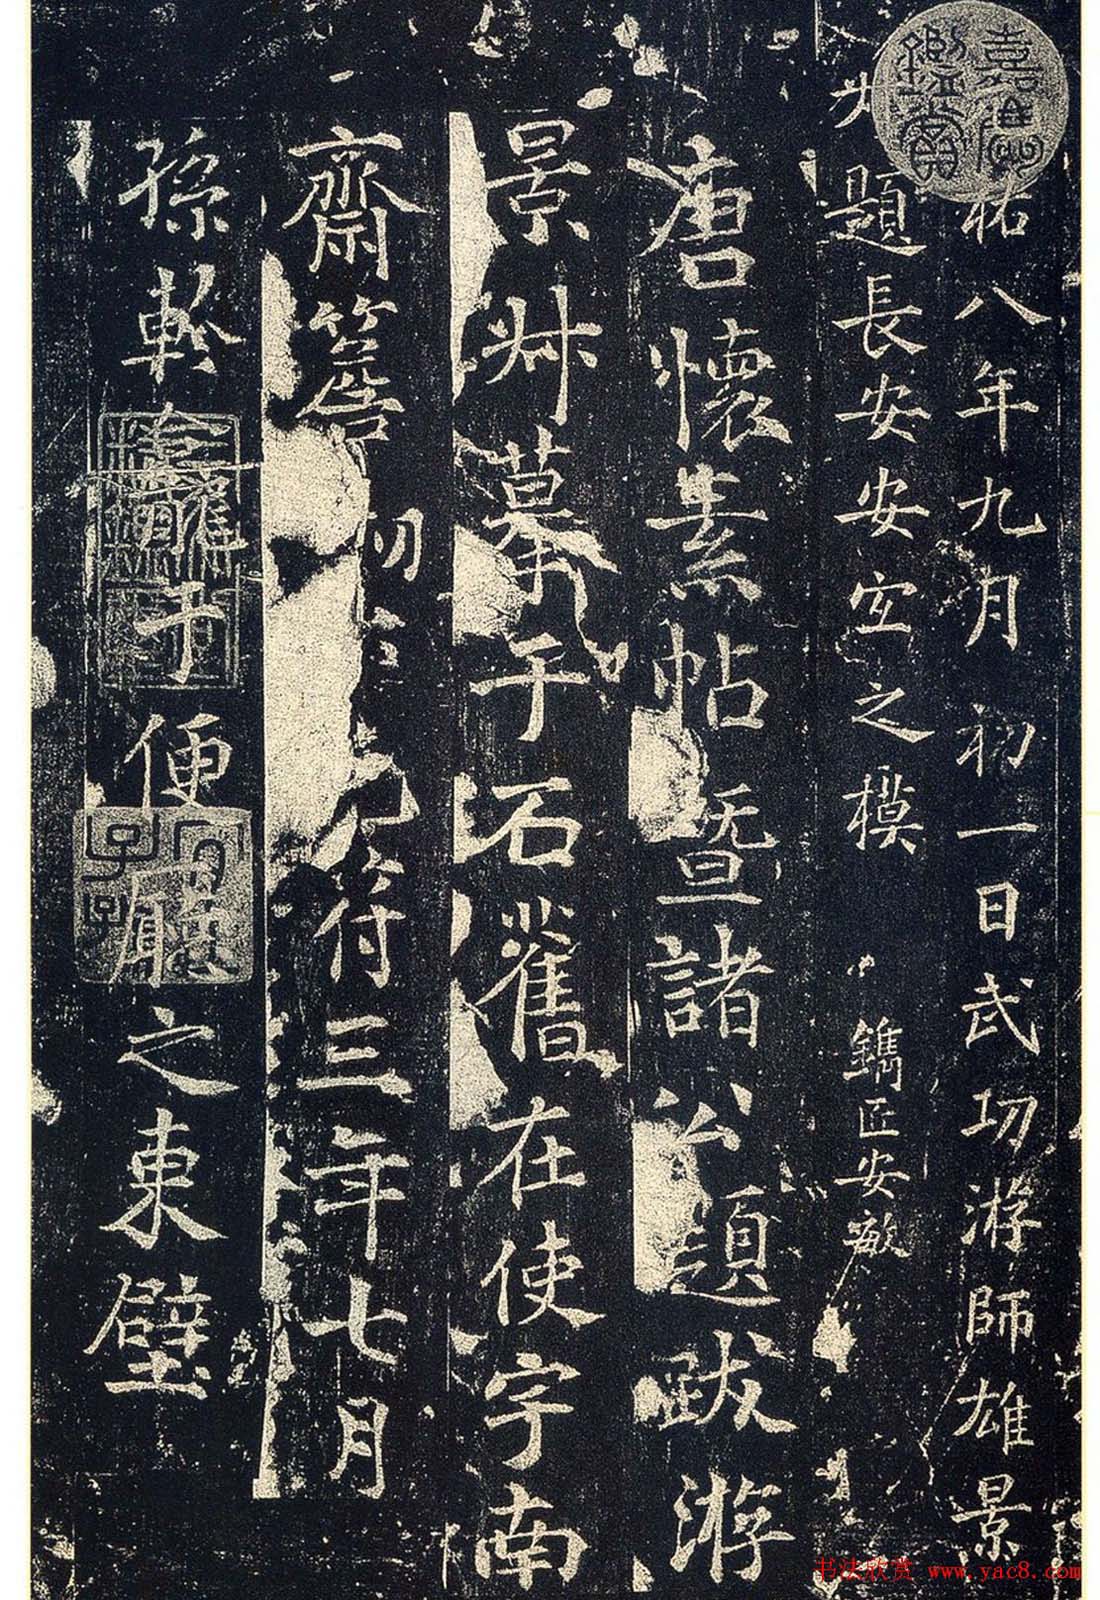 祐八年九月初一日武功游師雄景
題長安安宜之模　鐫匠安敏
唐懷素帖暨諸公題跋游
景叔摹于石舊在使宇南
齋簷　元符三年七月
孫軫移于便廳之東壁
书法欣赏 www.yac8.com